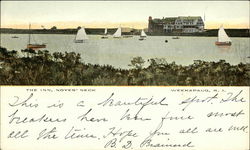 THE INN, NOYES' NECK
WEEKAPAUG, R. I.
This is a beautiful spot. The
breakers have been fine most
all the time. Hope you all are well.
B. D.